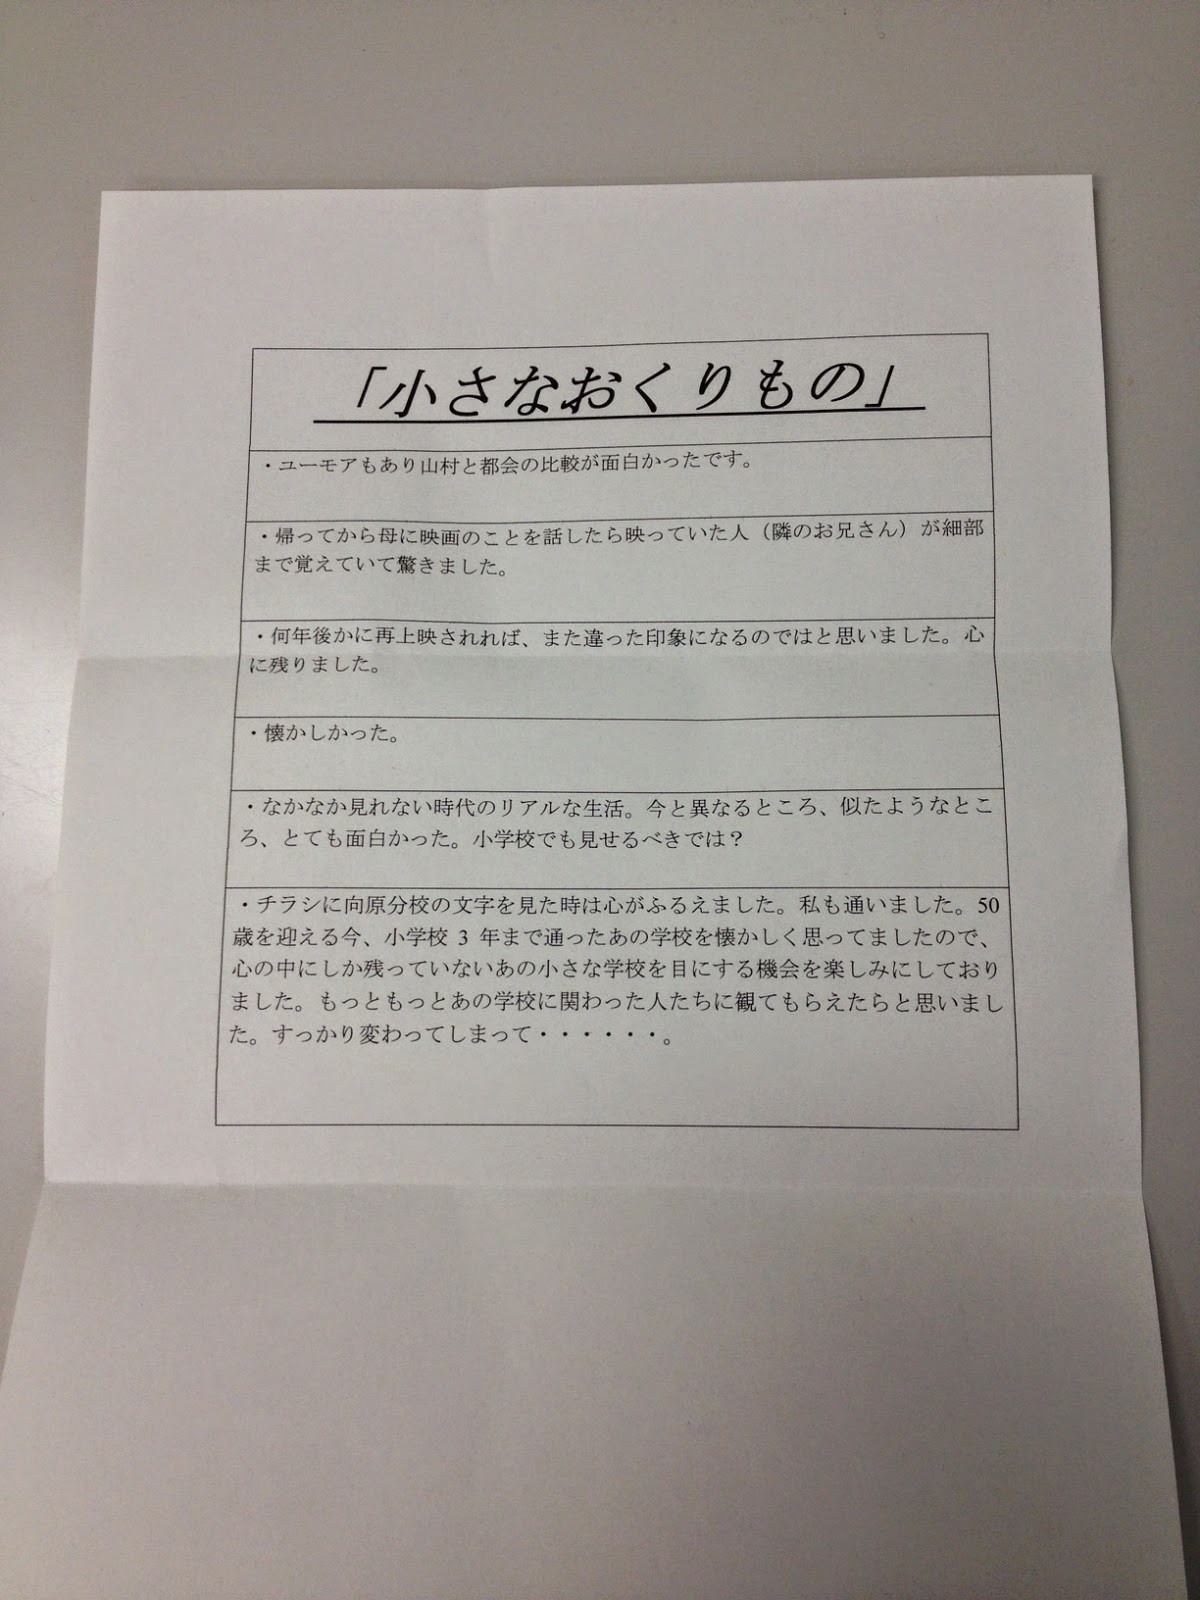 「小さなおくりもの」
・ユーモアもあり山村と都会の比較が面白かったです。
・帰ってから母に映画のことを話したら映っていた人（隣のお兄さん）が細部
まで覚えていて驚きました。
・何年後かに再上映されれば、また違った印象になるのではと思いました。心
に残りました。
・懐かしかった。
・なかなか見れない時代のリアルな生活。今と異なるところ、似たようなとこ
ろ、とても面白かった。小学校でも見せるべきでは？
・チラシに向原分校の文字を見た時は心がふるえました。私も通いました。50
歳を迎える今、小学校 3 年まで通ったあの学校を懐かしく思ってましたので、
心の中にしか残っていないあの小さな学校を目にする機会を楽しみにしており
ました。もっともっとあの学校に関わった人たちに観てもらえたらと思いまし
た。すっかり変わってしまって・・・・・・。